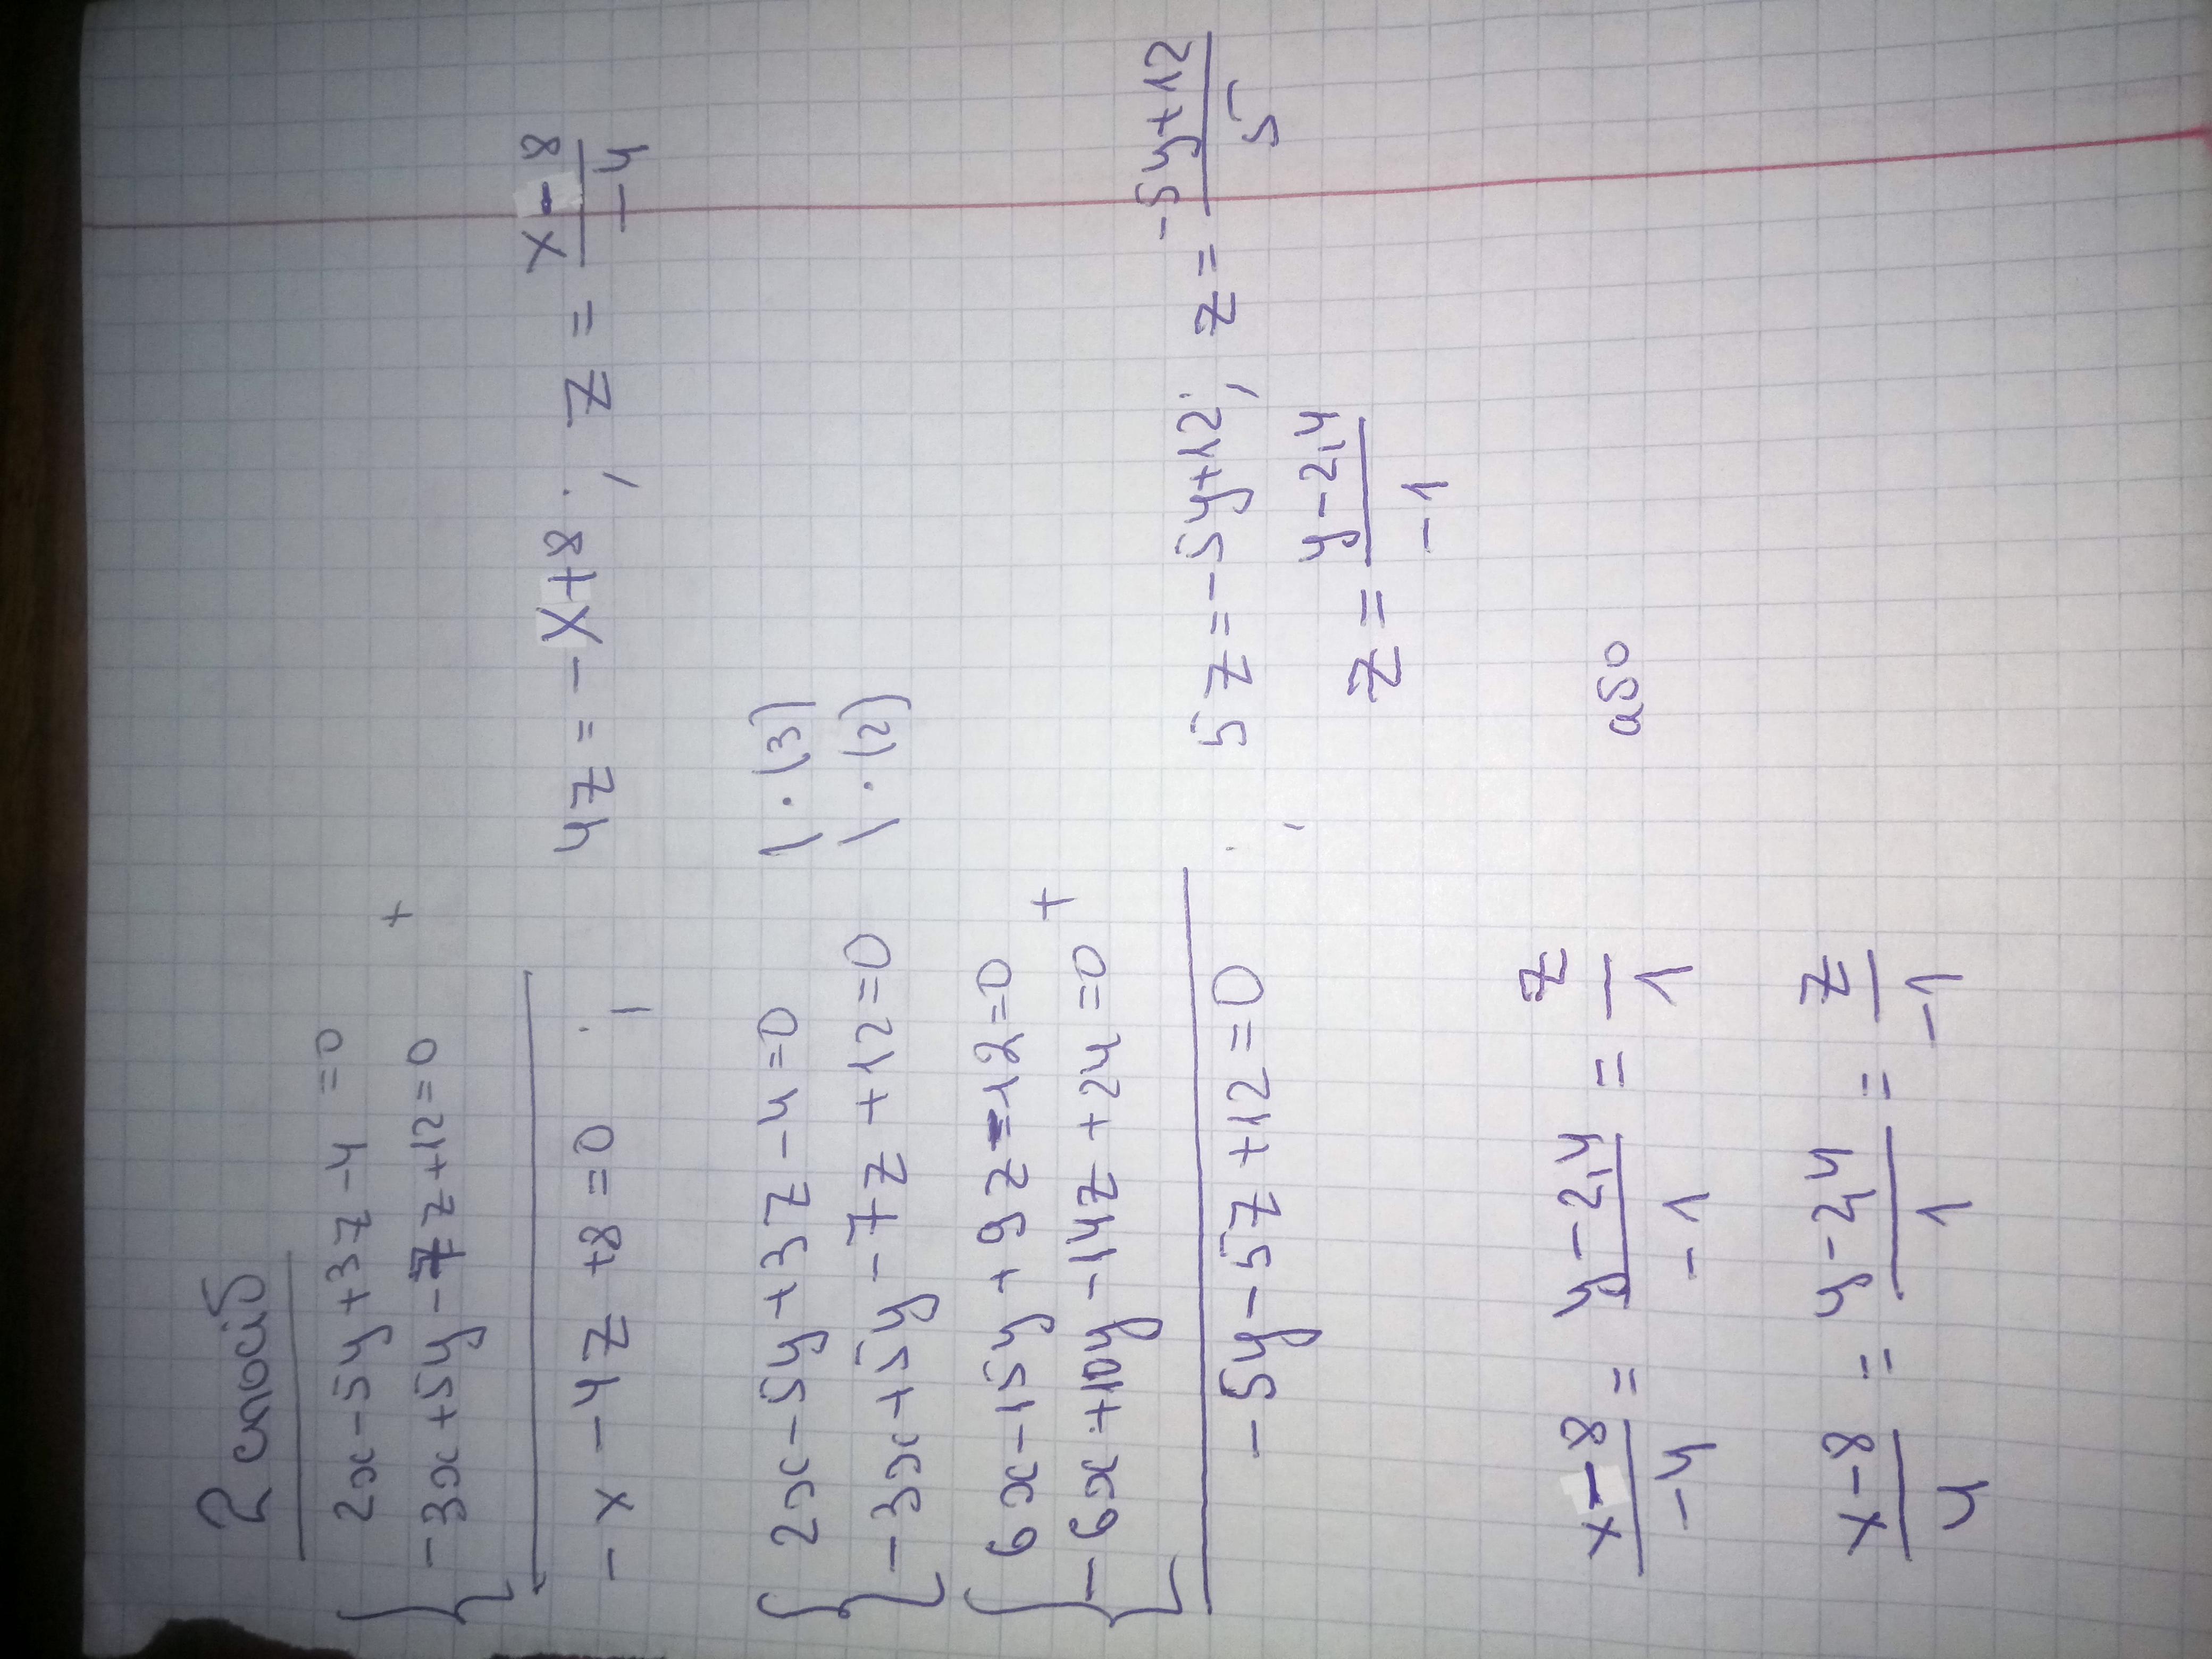 2 спосіб
{ 2x-5y+3z-4 =0
-3x+5y-7z+12=0 +
-x-4z+8=0 ; 4z=-x+8 ; z = (x-8)/(-4)
{ 2x-5y+3z-4=0 | ·(3)
-3x+5y-7z+12=0 | ·(2)
{ 6x-15y+9z-12=0
-6x+10y-14z+24=0 +
-5y-5z+12=0 ; 5z=-5y+12 ; z = (-5y+12)/5
z = (y-2,4)/(-1)
(x-8)/(-4) = (y-2,4)/(-1) = z/1 або
(x-8)/4 = (y-2,4)/1 = z/(-1)